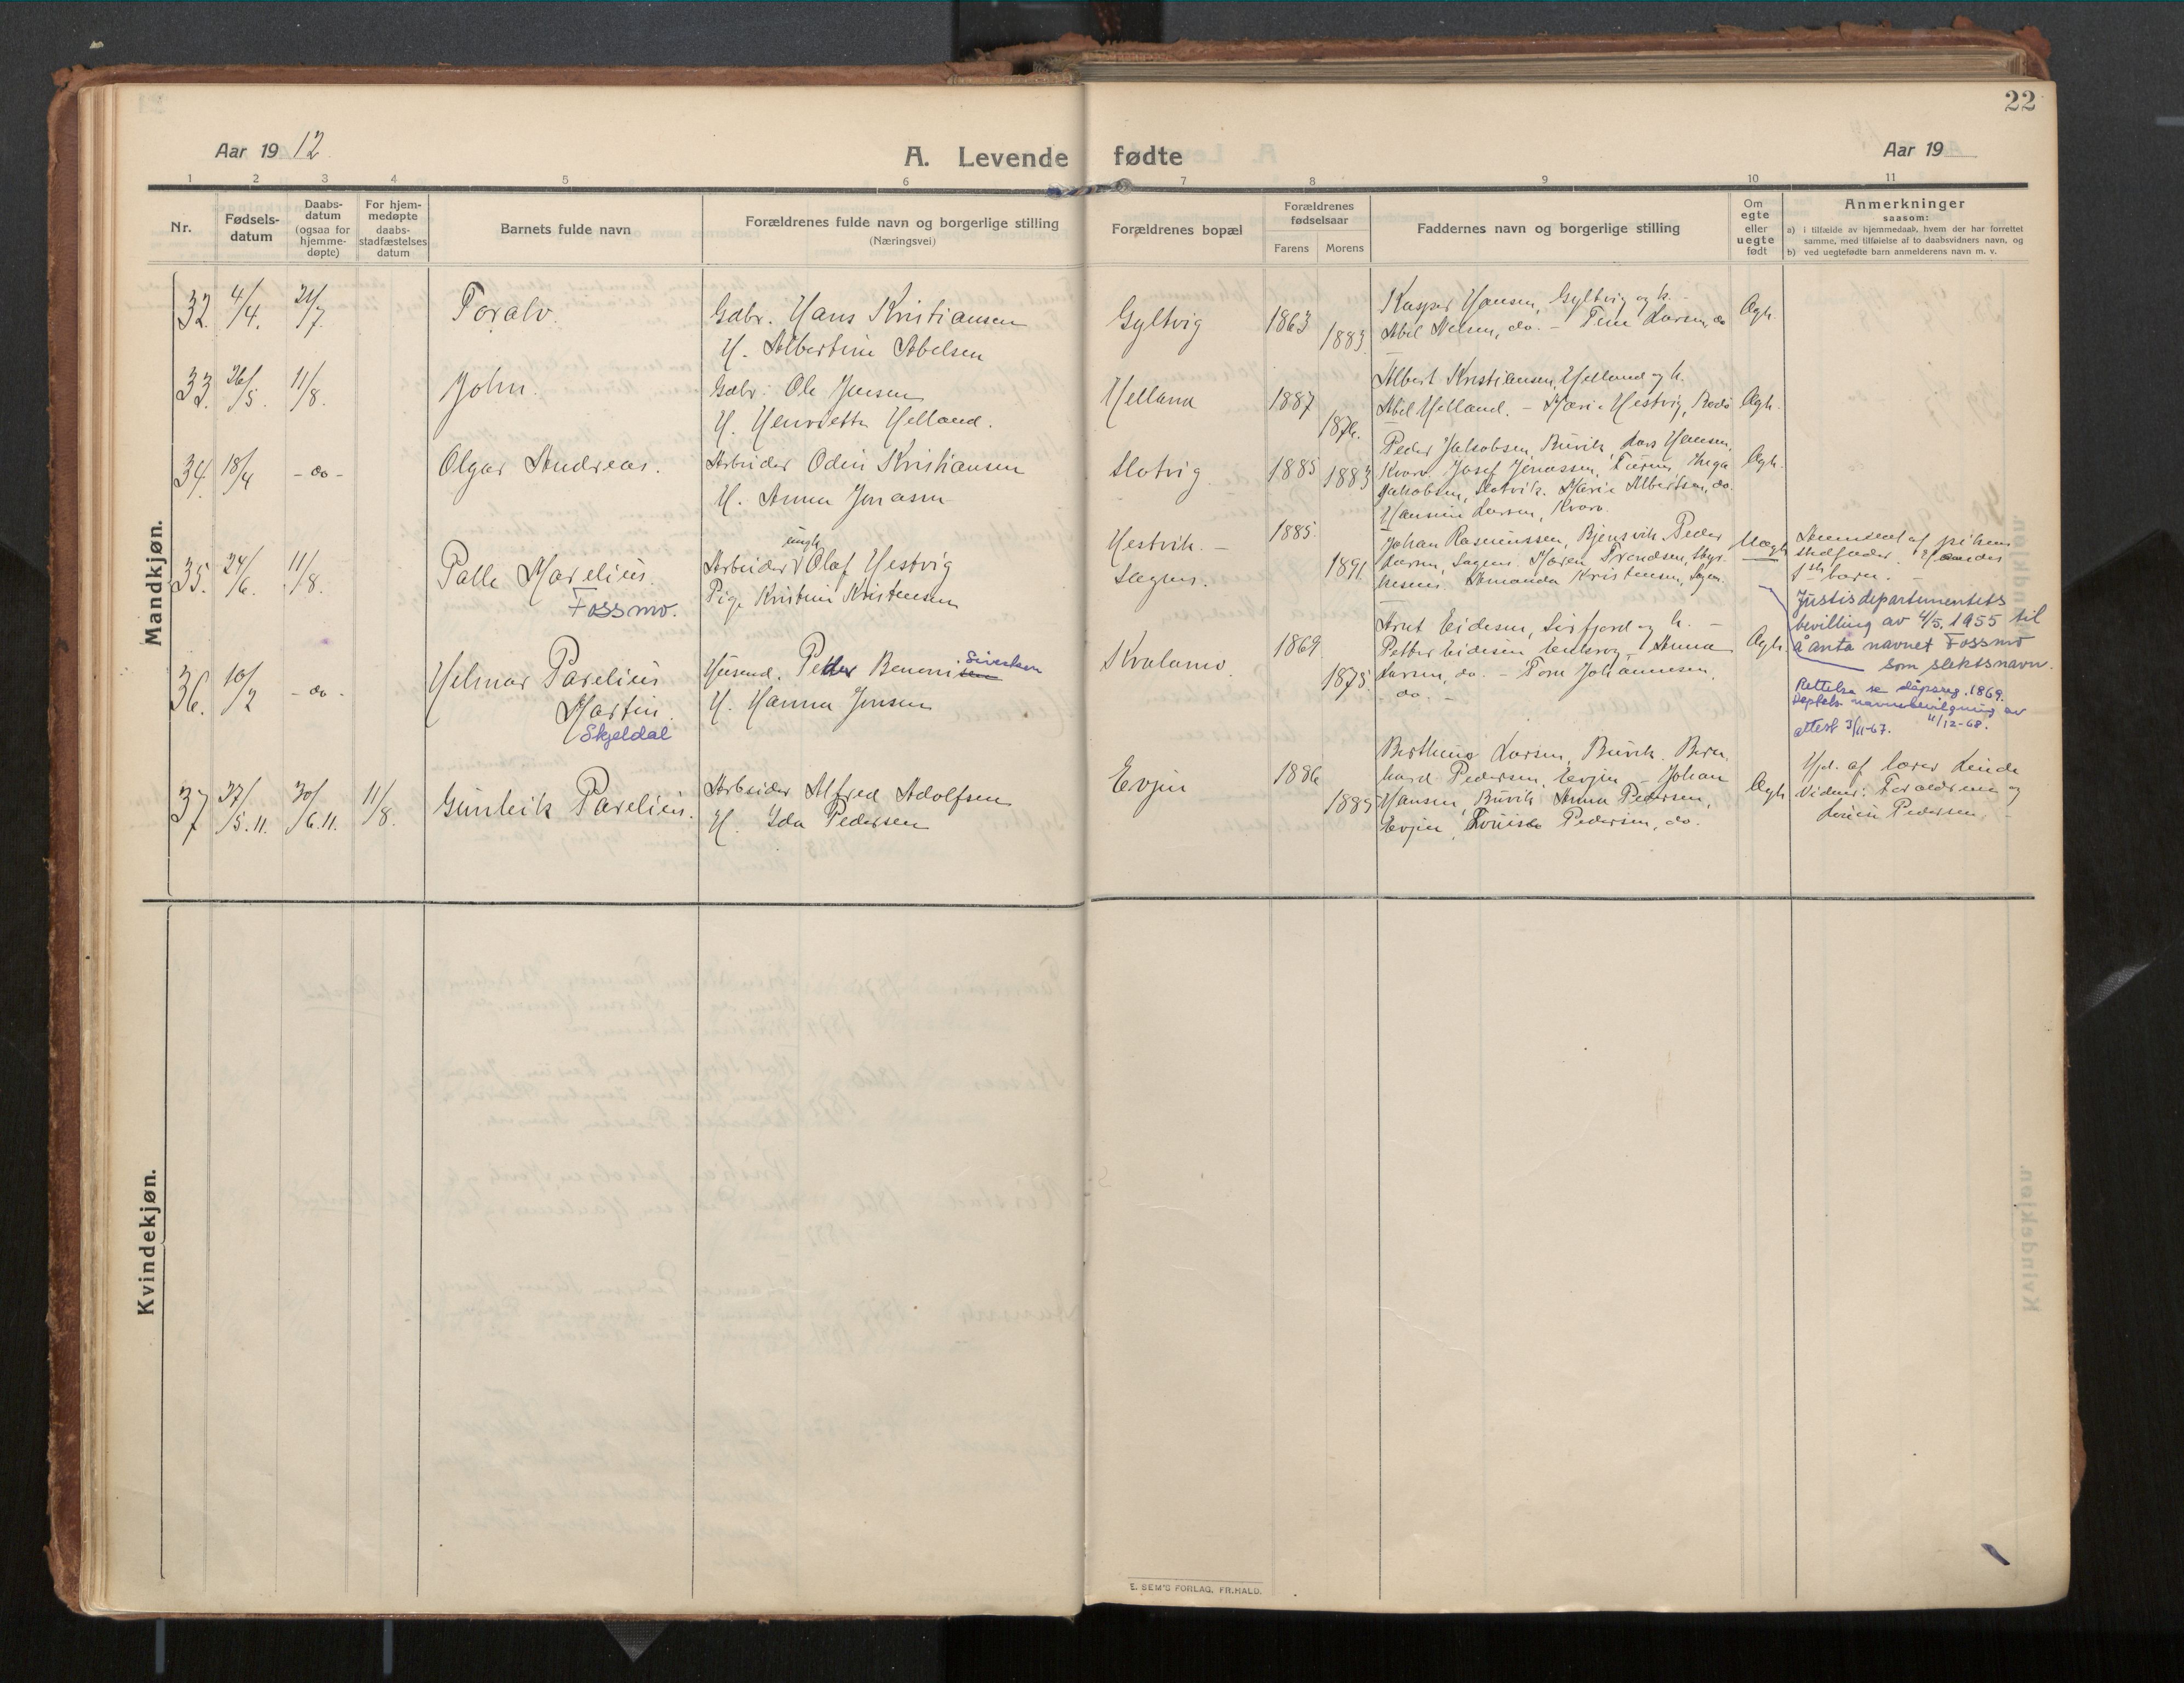 22
Aar 19 12.
A. Levende fødte
Aar 19
1 2 3 4 5 6 7 8 9 10 11
Nr.
Fødsels-
datum
Daabs-
datum
(ogsaa for
hjemme-
døpte)
For hjem-
medøpte
daabs-
stadfæstelses
datum
Barnets fulde navn
Forældrenes fulde navn og borgerlige stilling
(Næringsvei)
Forældrenes bopæl
Forældrenes
fødselsaar
Farens Morens
Faddernes navn og borgerlige stilling
Om
egte
eller
uegte
født
Anmerkninger
saasom:
a) i tilfælde av hjemmedaab, hvem der har forrettet
samme, med tilføielse af to daabsvidners navn, og
b) ved uegtefødte barn anmelderens navn m. v.
Mandkjøn.
32. 4/4. 21/7. Toralv.
Gdbr. Hans Kristiansen
H. Albertine Abelsen
Gyltvig 1863 1883.
Kasper Hansen, Gyltvig og h. -
Abel Nelsen, do. - Tine Larsen, do
Ægh.
33. 26/5. 11/8. John.
Gdbr. Ole Jensen
H. Henrietta Helland.
Helland 1887 1876.
Albert Kristiansen, Helland og h.
Abel Helland. - Marie Hestvig, Bodø
Ægh.
34. 18/4 - do - Olgar Andreas.
Arbeider Odin Kristiansen
H. Anna Jonasen
Slotvig. 1885 1883
Peder Jakobsen, Buvik, Lars Hansen,
Kvarv. Josef Jonassen, Inga
Jakobsen, Slotvik. Marie Albertsen, do.
Hansine Larsen, Kvarv.
Ægh.
35. 24/6. 11/8. Palle Marelius.
Fossmo.
ungk.
Arbeider Olaf Hestvig
Pige Kristine Kristensen
Hestvik. -
Sagnes.
1885. 1891.
Johan Rasmussen, Bjensvik. Peder
Larsen, Sagnes. Maren Arendsen, Styr-
kesnes Amanda Kristensen, Sagnes.
Uægh
Anmeldt af pikens
stedfader. Hændes
1ste barn. -
Justisdepartementets
bevilling av 4/5. 1955 til
å anta navnet Fossmo
som slektsnavn.
36. 10/2 - do - Hilmar Parelius
Martin.
Skjeldal
Husmd. Peder Benoni sen Sivertsen
H. Hanna Jensen
Kvalamo. 1869. 1875.
Arnt Eidesen, Sørfjord og h. -
Petter Eidesen Anna
Larsen, do. - Tora Johannesen,
do. -
Ægh
Rettelse se dåpsreg. 1869.
Deptets navnebevilgning av
attest 3/11-67. 11/12-68.
37 27/5.11. 30/6.11. 11/8. Gunleik Parelius.
Arbeider Alfred Adolfsen
H. Ida Pedersen
Evjen 1886 1885
Berthina Larsen, Buvik. Bern-
hard Pedersen, Evjen - Johan
Hansen, Buvik Anna Pedersen,
Evjen, Lovise Pedersen, do.
Ægh
Hjd. af lærer Leinde
Vidner: Forældrene og
Lovise Pedersen. -
Kvindekjøn.
E. SEM'S FORLAG, FR.HALD.